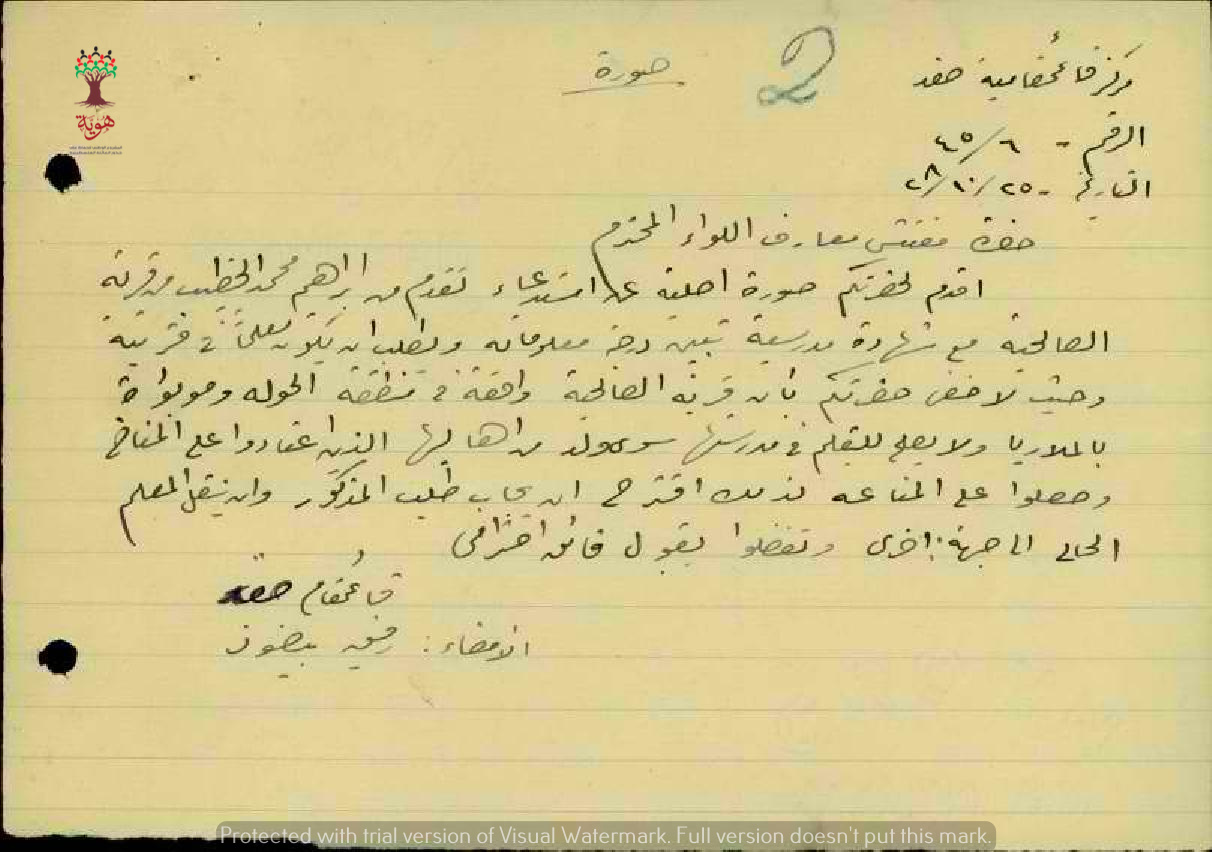 مركز قائمقامية صفد
2
صورة
الرقم - ٤٥/٦
التاريخ - ٢٥/١٠/٢٨
حضرة مفتش معارف اللواء المحترم
اقدم لحضرتكم صورة اصلية عن استدعاء تقدم من ابراهيم محمد الخطيب من قرية
الصالحية مع شهادة مدرسية تبين درجة معلوماته ويطلب ان يكون معلماً في قريته
وحيث لا يخفى حضرتكم بان قرية الصالحية واقعة في منطقة الحولة وموبوءة
بالملاريا ولا يصلح للتعليم في مدرستها سوى ولد من اهاليها الذين اعتادوا على المناخ
وحصلوا على المناعة لذلك اقترح ان يجاب طلب المذكور وان ينقل المعلم
الحالي الى جهة اخرى وتفضلوا بقبول فائق احترامي
قائمقام صفد
الامضاء: رفيق بيضون
هوية
Protected with trial version of Visual Watermark. Full version doesn't put this mark.